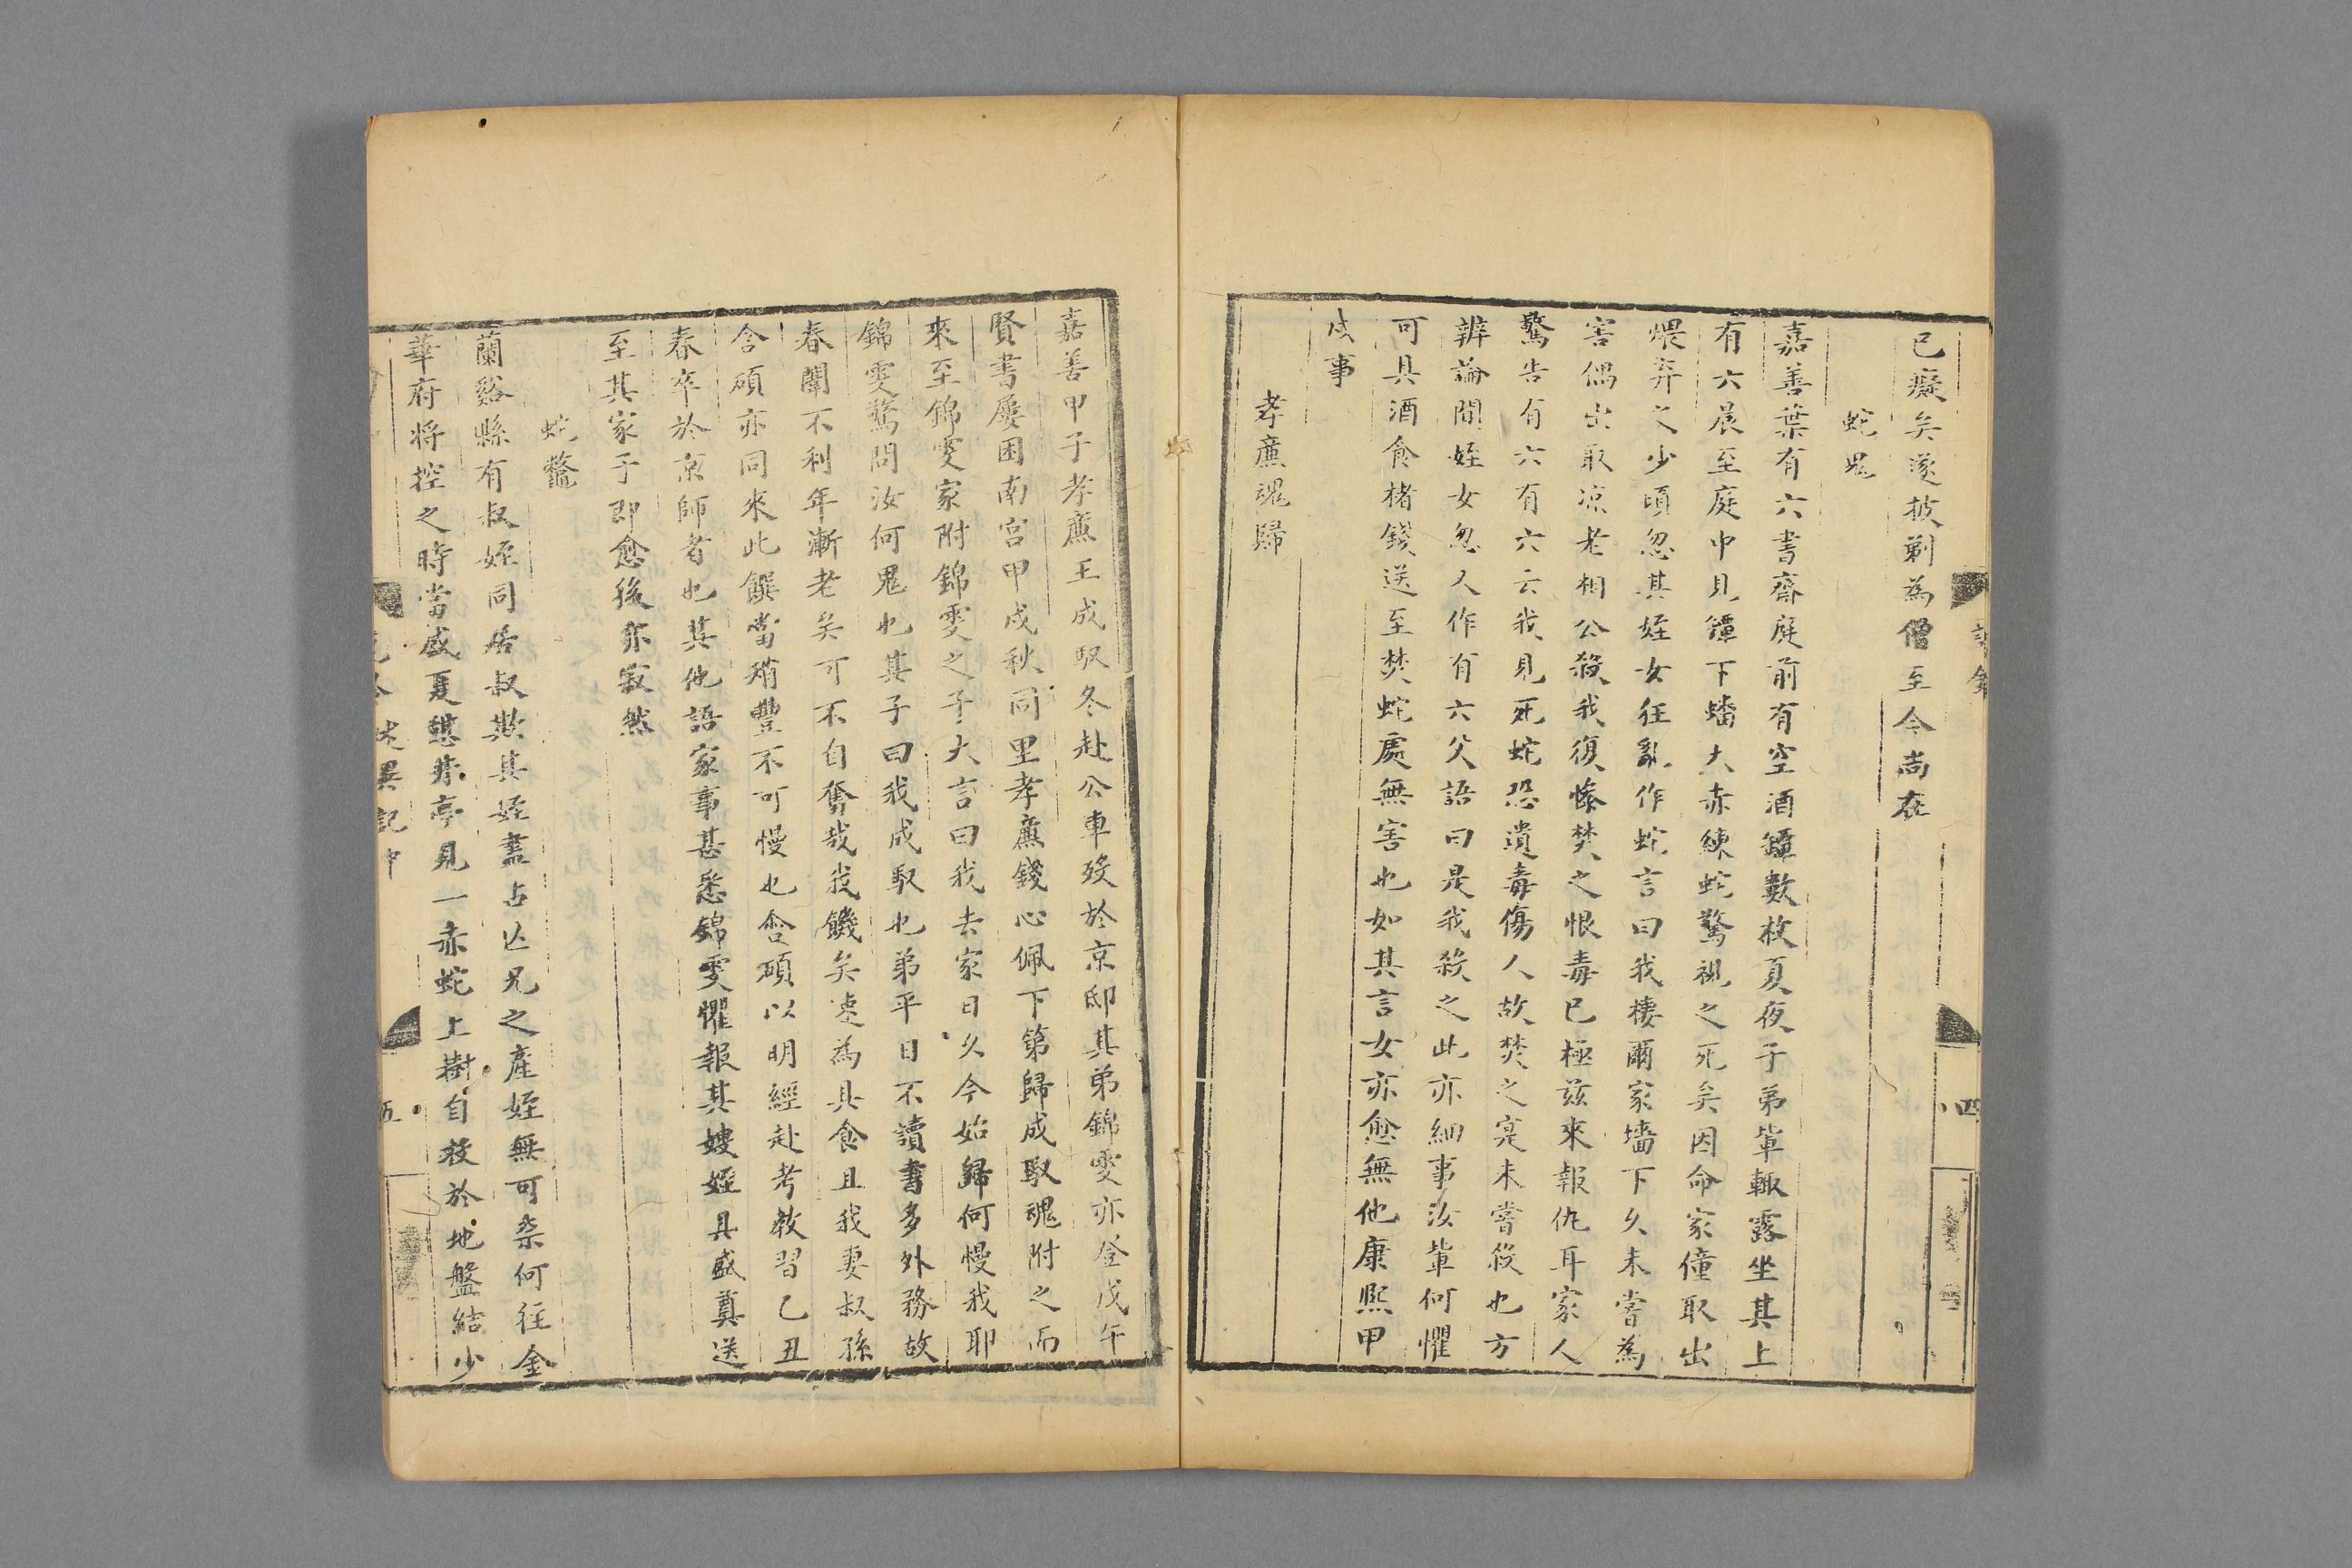 已癡矣遂披剃為僧至今尚在
蛇鬼
嘉善葉有六書齋庭前有空酒罈數枚夏夜子弟軰輙露坐其上
有六晨至庭中見罈下蟠大赤練蛇驚視之死矣因命家僮取出
煨弃之少頃忽其姪女狂亂作蛇言曰我棲爾家墻下久未嘗為
害偶出取凉老相公殺我復慘焚之恨毒已極兹來報仇耳家人
驚告有六有六云我見死蛇恐遺毒傷人故焚之寔未嘗殺也方
辨論間姪女忽又作有六父語曰是我殺之此亦細事汝軰何懼
可具酒食楮錢送至焚蛇處無害也如其言女亦愈無他康熙甲
戌事
孝廉魂歸
四
嘉善甲子孝廉王成馭冬赴公車歿於京邸其弟錦雯亦登戊午
賢書屡困南宫甲戌秋同里孝廉錢心佩下第歸成馭魂附之而
來至錦雯家附錦雯之子大言曰我去家日久今始歸何慢我耶
錦雯驚問汝何鬼也其子曰我成馭也弟平日不讀書多外務故
春闈不利年漸老矣可不自奮哉我饑矣速為具食且我妻叔孫
含碩亦同來此饌當稍豐不可慢也含碩以明經赴考教習乙丑
春卒於京師者也其他語家事甚悉錦雯懼報其嫂姪具盛奠送
至其家子即愈後亦寂然
蛇鼈
蘭谿縣有叔姪同居叔欺其姪盡占亾兄之產姪無可柰何往金
華府將控之時當盛夏憇井亭見一赤蛇上樹自投於地盤結少
述異記中
五